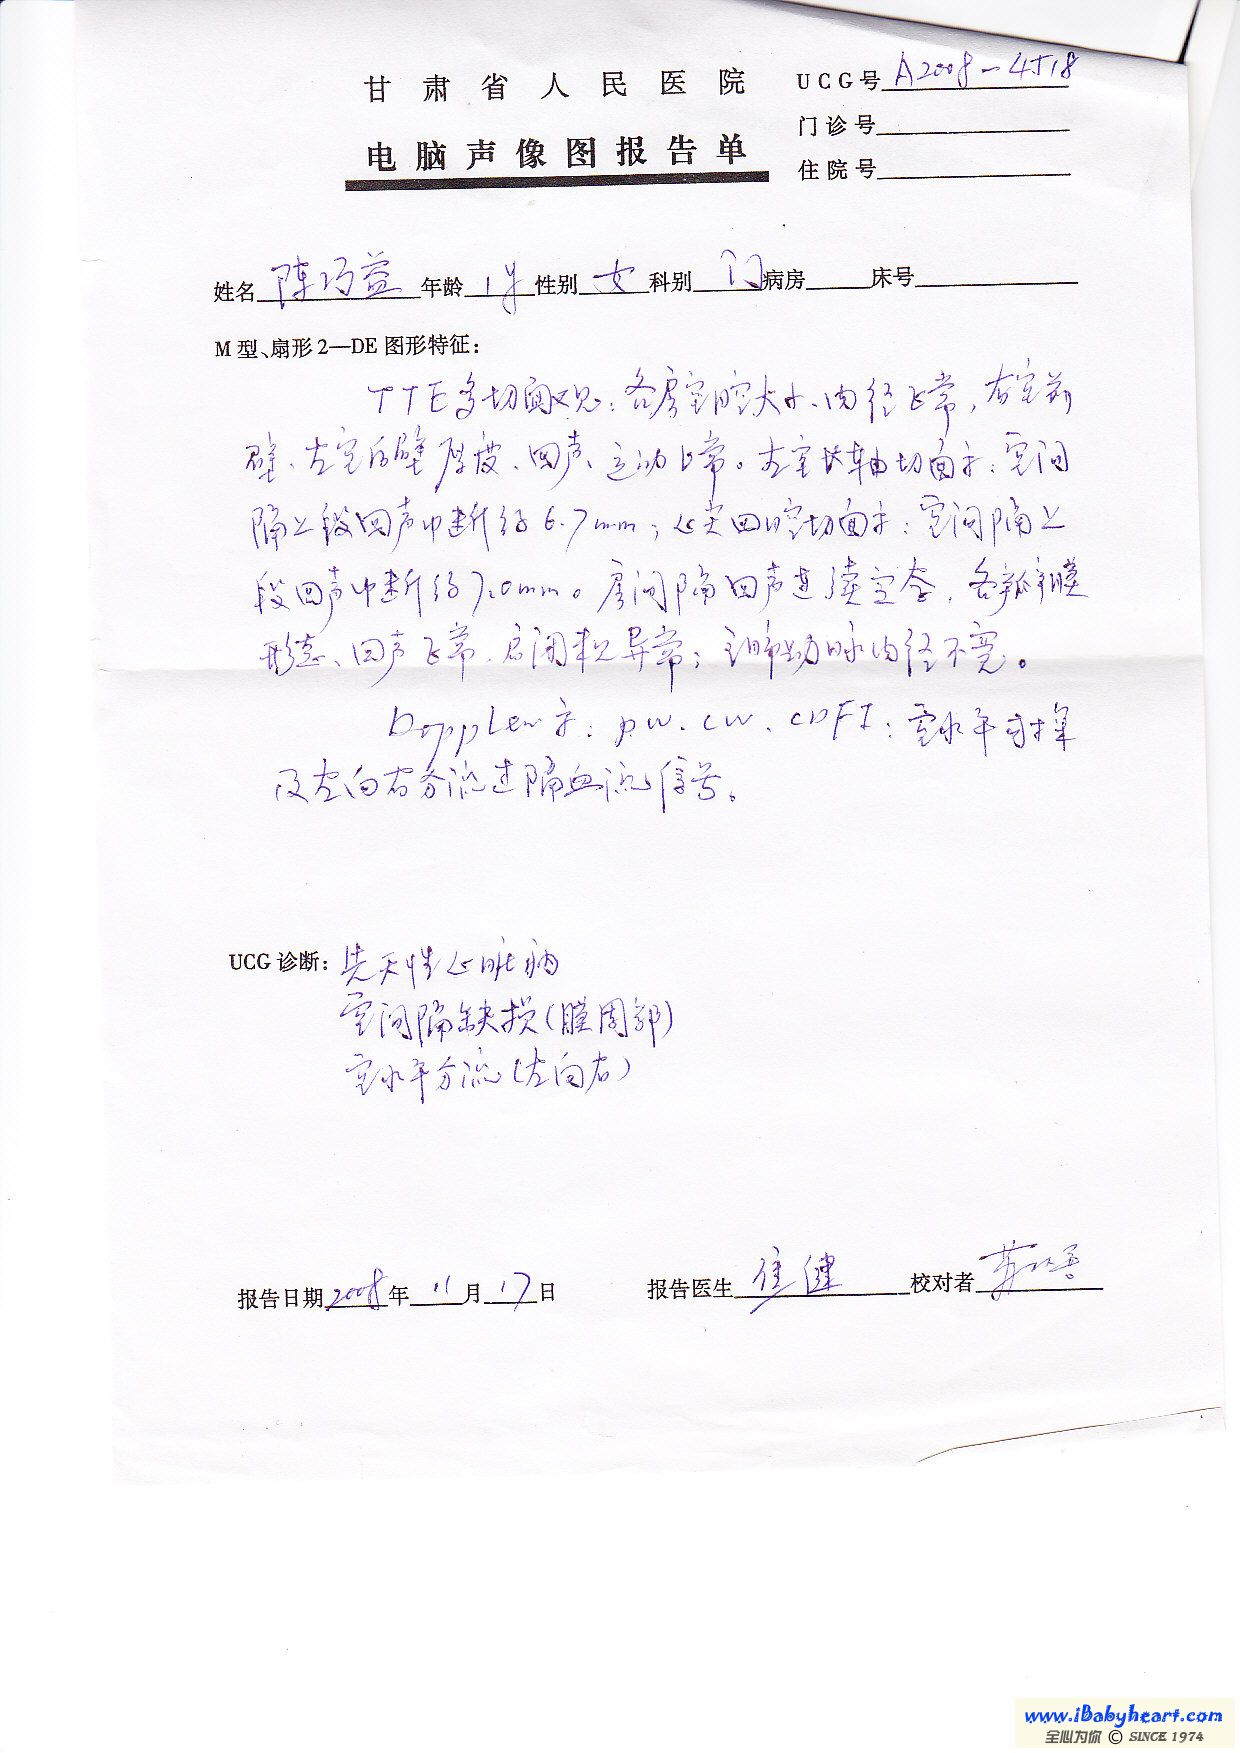 甘肃省人民医院
电脑声像图报告单
UCG号 A2008-4518
门诊号
住院号
姓名 陈巧益 年龄 1岁 性别 女 科别 门 病房 床号
M型、扇形2—DE图形特征:
TTE多切面观: 各房室腔大小、内径正常, 右室前
壁、左室后壁厚度、回声、运动正常。左室长轴切面示: 室间
隔上段回声中断约6.7mm; 心尖四腔切面示: 室间隔上
段回声中断约7.0mm。房间隔回声连续完整, 各瓣瓣膜
形态、回声正常, 启闭未见异常; 主肺动脉内径不宽。
Doppler示: PW、CW、CDFI: 室水平可探
及左向右分流过隔血流信号。
UCG诊断: 先天性心脏病
室间隔缺损(膜周部)
室水平分流(左向右)
报告日期 2008年 11月 17日 报告医生 焦健 校对者
www.iBabyheart.com
全心为你 © SINCE 1974